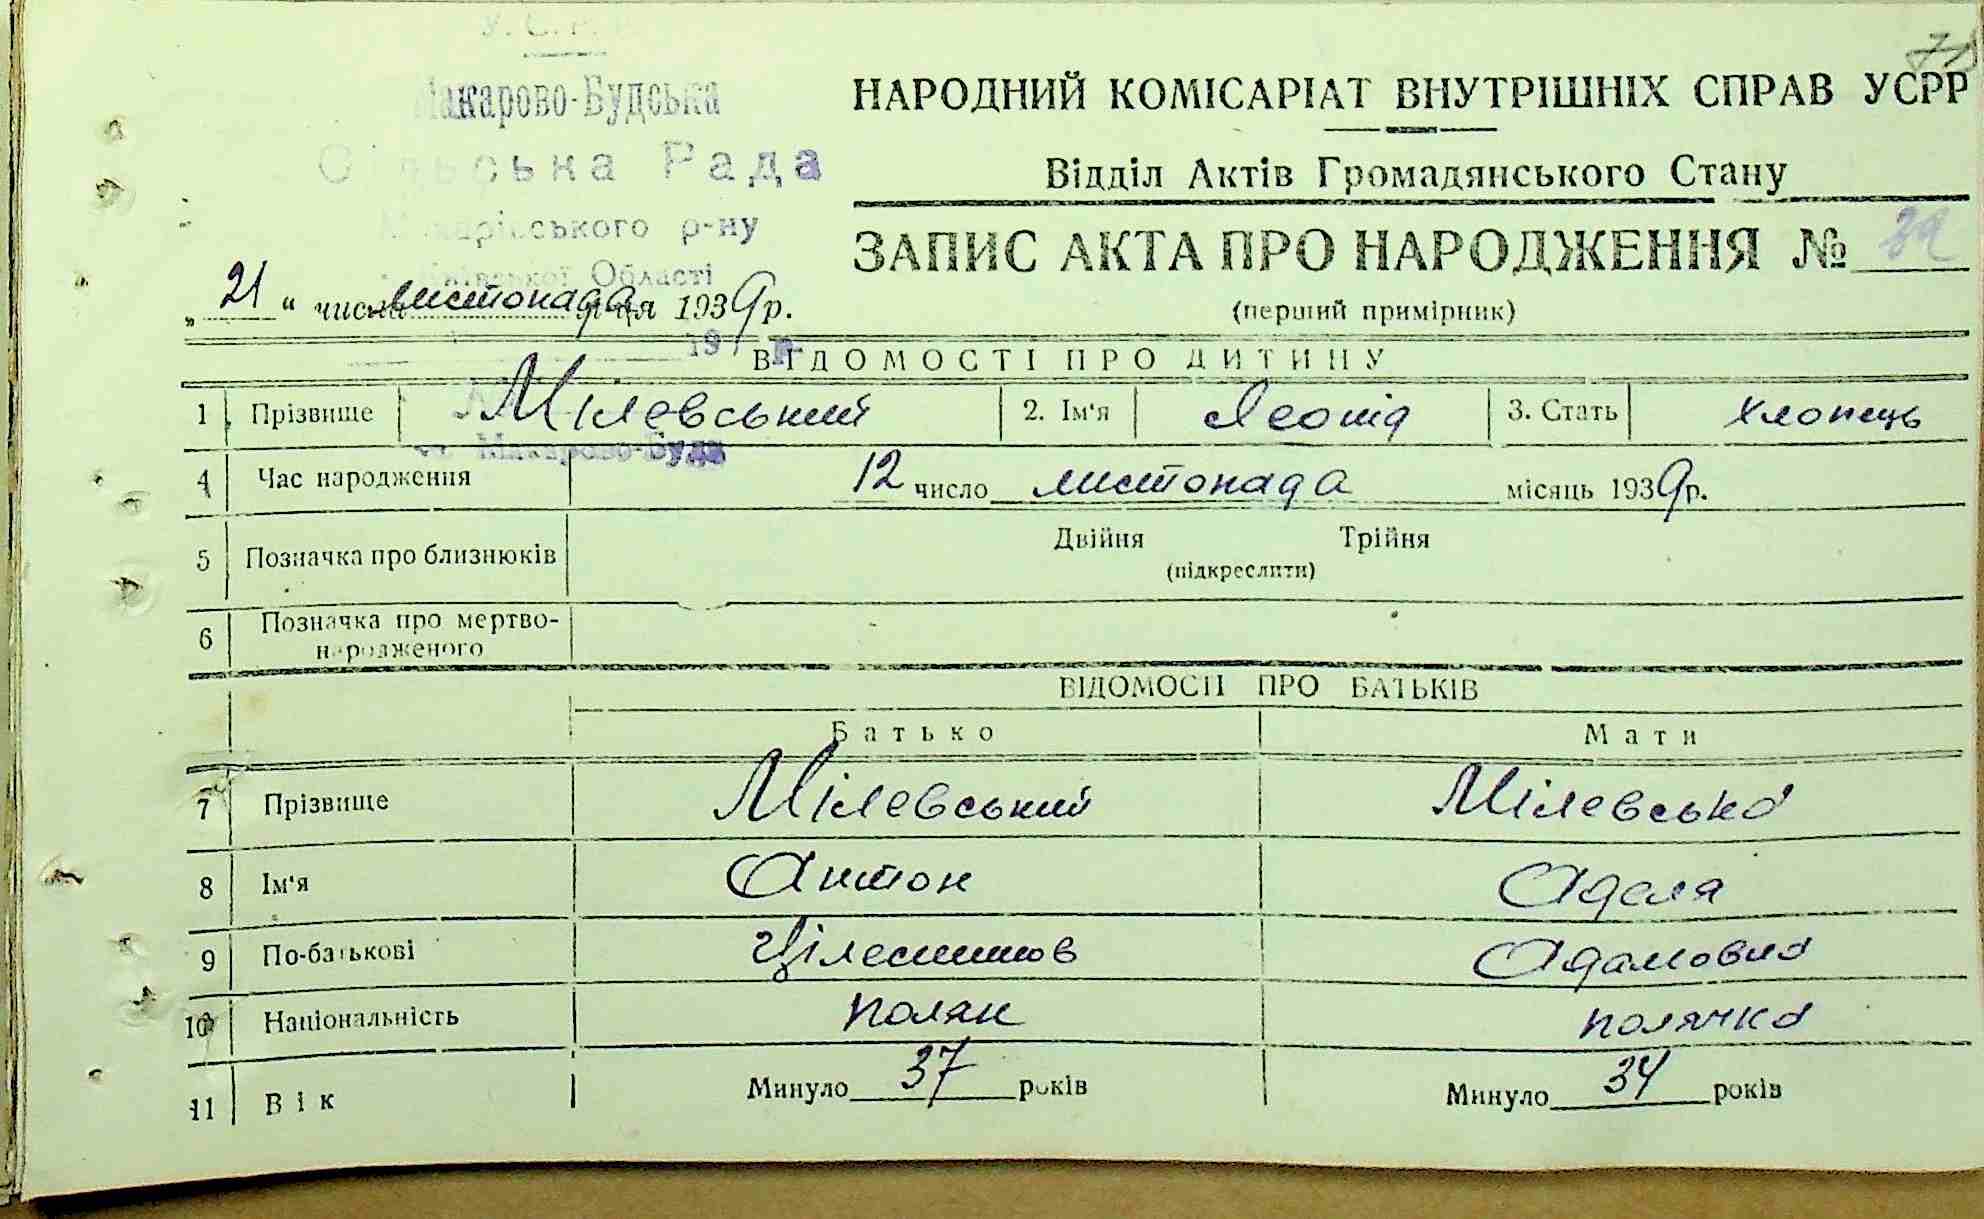 У. С. Р. Р.
Макарово-Будська
Сільська Рада
Макарівського р-ну
Київської Області
19 р.
с. Макарово-Буда
71
НАРОДНИЙ КОМІСАРІАТ ВНУТРІШНІХ СПРАВ УСРР
Відділ Актів Громадянського Стану
ЗАПИС АКТА ПРО НАРОДЖЕННЯ №
(перший примірник)
„21“ числа листопада місяця 1939 р.
ВІДОМОСТІ ПРО ДИТИНУ
1 Прізвище Мілевський 2. Ім'я Леонід 3. Стать хлопець
4 Час народження 12 число листопада місяць 1939 р.
5 Позначка про близнюків Двійня Трійня
(підкреслити)
6 Позначка про мертво-
народженого
ВІДОМОСТІ ПРО БАТЬКІВ
Батько Мати
7 Прізвище Мілевський Мілевська
8 Ім'я Антон Аделя
9 По-батькові Адамовна
10 Національність поляк полячка
11 Вік Минуло 37 років Минуло 34 років